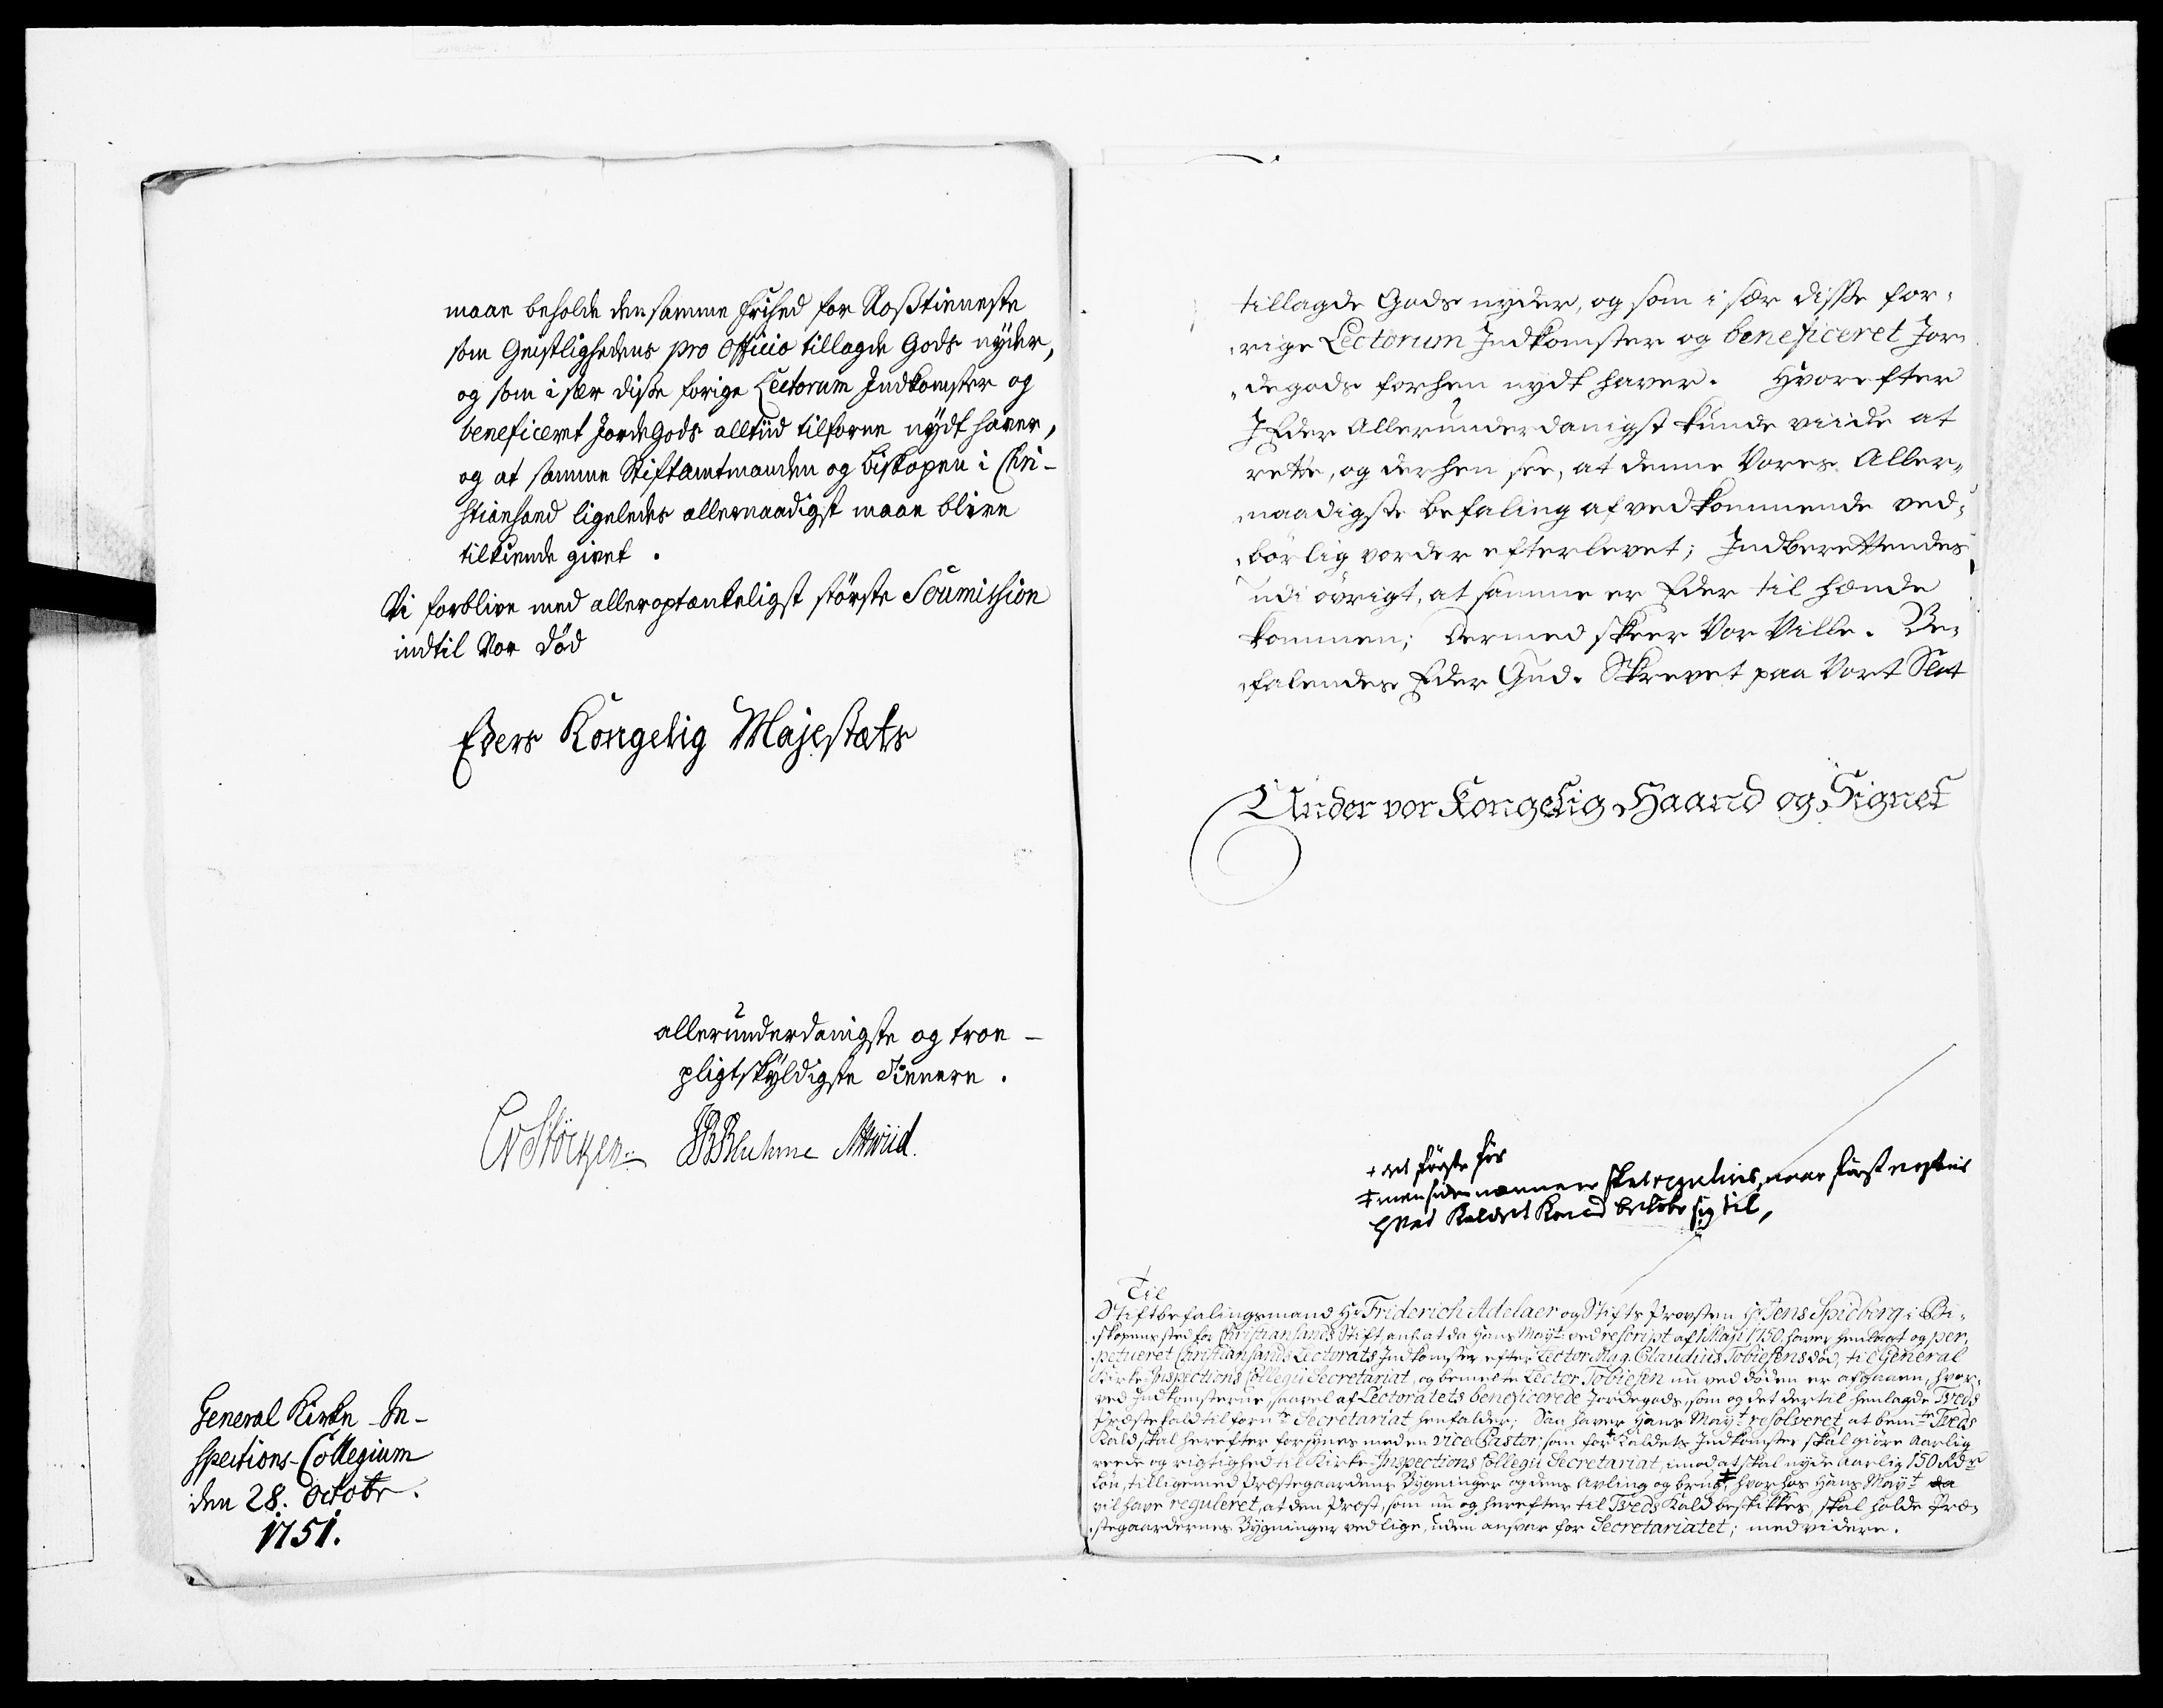 maae beholde den samme Frihed for Roßtieneste
som Geistlighedens pro Officio tillagde Gods nyder,
og som i sær disse forige Lectorum Indkomster og
beneficeret JordeGods alltiid tilforne nÿdt haver,
og at samme Stiftamtmanden og Biskopen i Chri-
stiansand ligeledes allernaadigst maae blive
tilkiende givet.
Vi forblive med alleroptænkeligst störste Soumission
indtil Vor Död
Eders Kongelig Majestæts
allerunderdanigste og troe-
pligtskÿldigste Tienere.
CvStöcken JBBluhme AHwiid.
General Kirke-In-
spections-Collegium
den 28. Octobr.
1751.
tillagde Gods nyder, og som i sær disse for-
rige Lectorum Indkomster og beneficeret Jor-
degods forhen nydt haver. Hvorefter
I Eder Allerunderdanigst kunde viide at
rette, og derhen see, at denne Vores Aller-
naadigste Befaling af vedkommende ved-
börlig vorder efterlevet; Indberettendes
udi övrigt, at samme er Eder til hænde
kommen; Dermed skeer Vor Villie. Be-
falendes Eder Gud. Skrevet paa Vort Slot
Under vor Kongelig Haand og Signet
+ det første
‡ men siden nærmere skal reguleris, naar först vides
hvad Kaldet kand belöbe sig til,
Til
Stiftbefalingsmand Hr Friderich Adelaer og Stifts Provsten Hr Jens Spidberg i Bi-
skopens sted for Christiansands Stift, anl: at da Hans Mayt: ved rescript af 1 Maji 1750, haver henlagt og per-
petueret Christiansands Lectorats Indkomster efter Lector Mag. Claudius Tobiesens död, til General
Kirke-Inspections Collegii Secretariat, og bemelte Lector Tobiesen nu ved döden er afgaaen, hvor-
ved Indkomsterne, saavel af Lectoratets beneficerede Jordegods, som og det dertil henlagde Tveds
Præstekald til forn:te Secretariat henfalder; Saa haver Hans Mayt resolveret, at bem:te Tveds
Kald skal herefter forsynes med en vice Pastor, som for + Kaldets Indkomster skal giöre Aarlig
reede og rigtighed til Kirke-Inspections Collegii Secretariat, imod at skal nyde Aarlig 150 Rdr
Lön, tilligemed Præstegaardens Bygninger og dens Avling og brug, ‡ hvorhos Hans Mayt da
vil have reguleret, at den Præst, som nu og herefter til Tveds Kald beskikkes, skal holde Præ-
stegaardernes Bygninger vedlige, uden ansvar for Secretariatet; med videre.